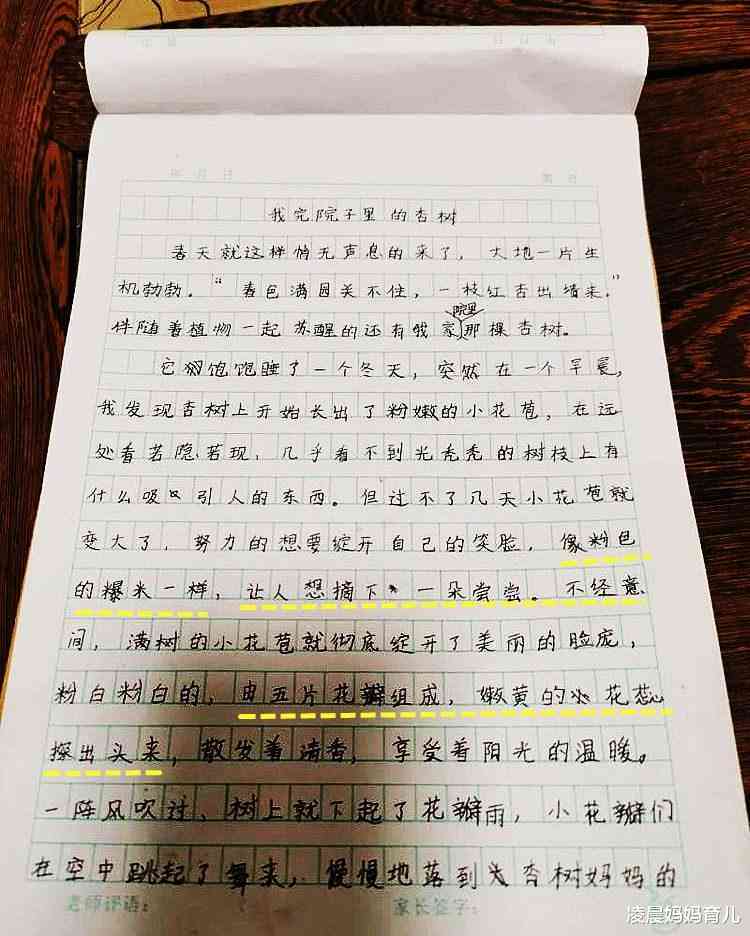 年 月 日
第 页
我家院子里的杏树
春天就这样悄无声息的来了，大地一片生
机勃勃。“春色满园关不住，一枝红杏出墙来，”
院里
伴随着植物一起苏醒的还有我家那棵杏树。
它饱饱睡了一个冬天，突然在一个早晨，
我发现杏树上开始长出了粉嫩的小花苞，在远
处看若隐若现，几乎看不到光秃秃的树枝上有
什么吸引人的东西。但过不了几天小花苞就
变大了，努力的想要绽开自己的笑脸，像粉色
的爆米一样，让人想摘下一朵尝尝。不经意
间，满树的小花苞就彻底绽开了美丽的脸庞，
粉白粉白的，由五片花瓣组成，嫩黄的小花蕊
探出头来，散发着清香，享受着阳光的温暖。
一阵风吹过，树上就下起了花瓣雨，小花瓣们
在空中跳起了舞来，慢慢地落到大杏树妈妈的
老师评语：
家长签字：
凌晨妈妈育儿